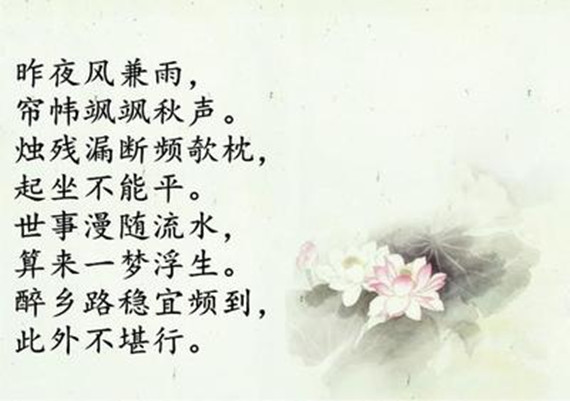 昨夜风兼雨，
帘帏飒飒秋声。
烛残漏断频欹枕，
起坐不能平。
世事漫随流水，
算来一梦浮生。
醉乡路稳宜频到，
此外不堪行。